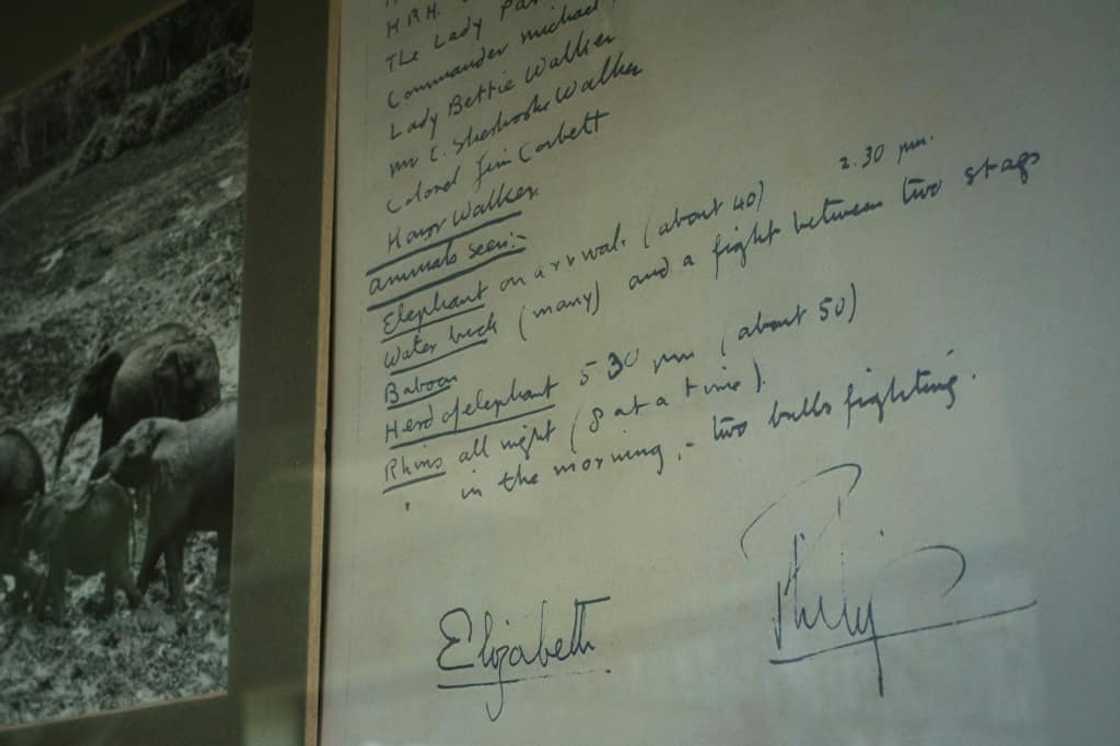 H.R.H.
The Lady Pa
Commander Michael
Lady Bettie Walker
Mr C. Sherbrooke Walker
Colonel Jim Corbett
Honor Walker
Animals seen:-
Elephant on arrival. (about 40) 2.30 pm.
Water buck (many) and a fight between two stags
Baboon
Herd of elephant 5 30 pm (about 50)
Rhino all night (8 at a time).
" in the morning, - two bulls fighting.
Elizabeth Philip